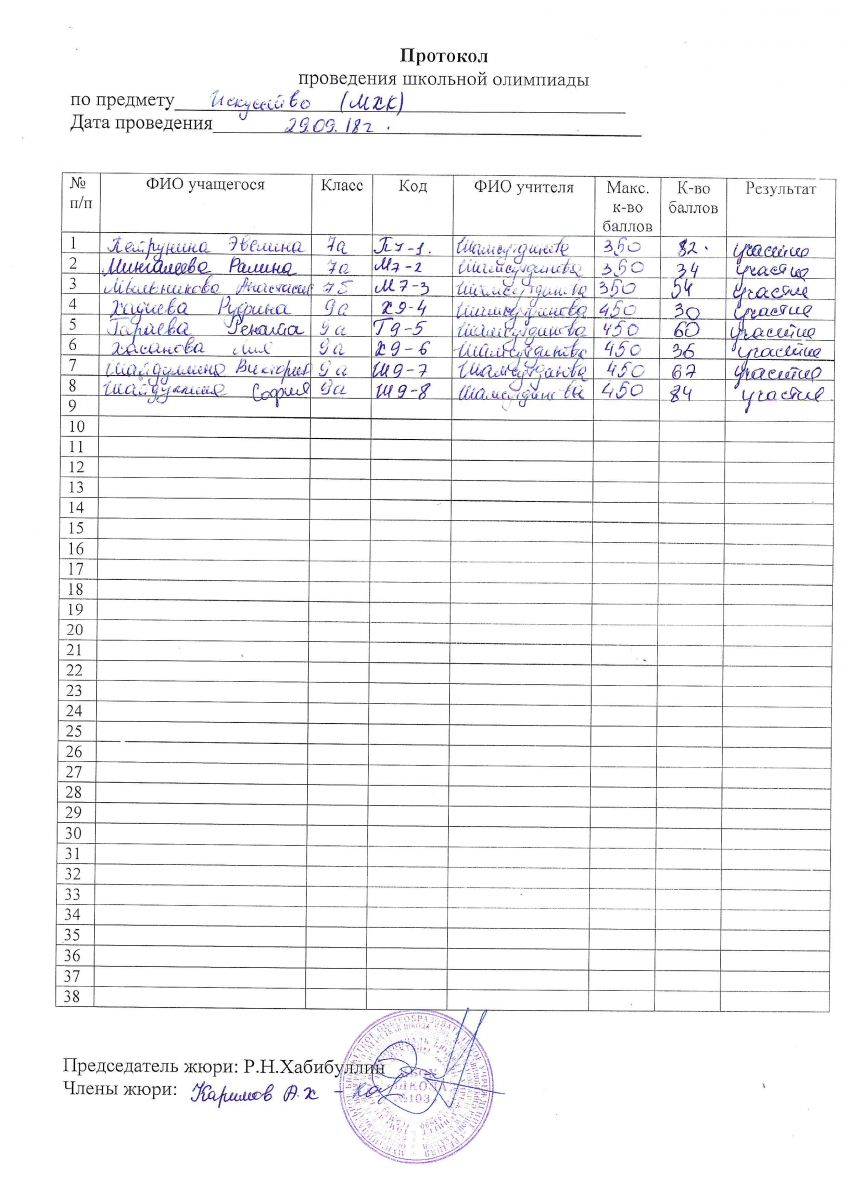 Протокол
проведения школьной олимпиады
по предмету Искусство (МХК)
Дата проведения 29.09.18г.
№ п/п ФИО учащегося Класс Код ФИО учителя Макс. к-во баллов К-во баллов Результат
1 Петрунина Эвелина 7а П7-1. Шамсутдинова 350 82. участие
2 Мингалеева Ралина 7а М7-2 Шамсутдинова 350 34 участие
3 Мыльникова Анастасия 7б М7-3 Шамсутдинова 350 54 участие
4 Хадиева Рубина 9а Х9-4 Шамсутдинова 450 30 участие
5 Гараева Рената 9а Г9-5 Шамсутдинова 450 60 участие
6 Хасанова Лия 9а Х9-6 Шамсутдинова 450 36 участие
7 Шайдуллина Виктория 9а Ш9-7 Шамсутдинова 450 67 участие
8 Шайдуллина София 9а Ш9-8 Шамсутдинова 450 84 участие
9
10
11
12
13
14
15
16
17
18
19
20
21
22
23
24
25
26
27
28
29
30
31
32
33
34
35
36
37
38
Председатель жюри: Р.Н.Хабибуллин
Члены жюри: Каримов А.Х
ШКОЛА
№103